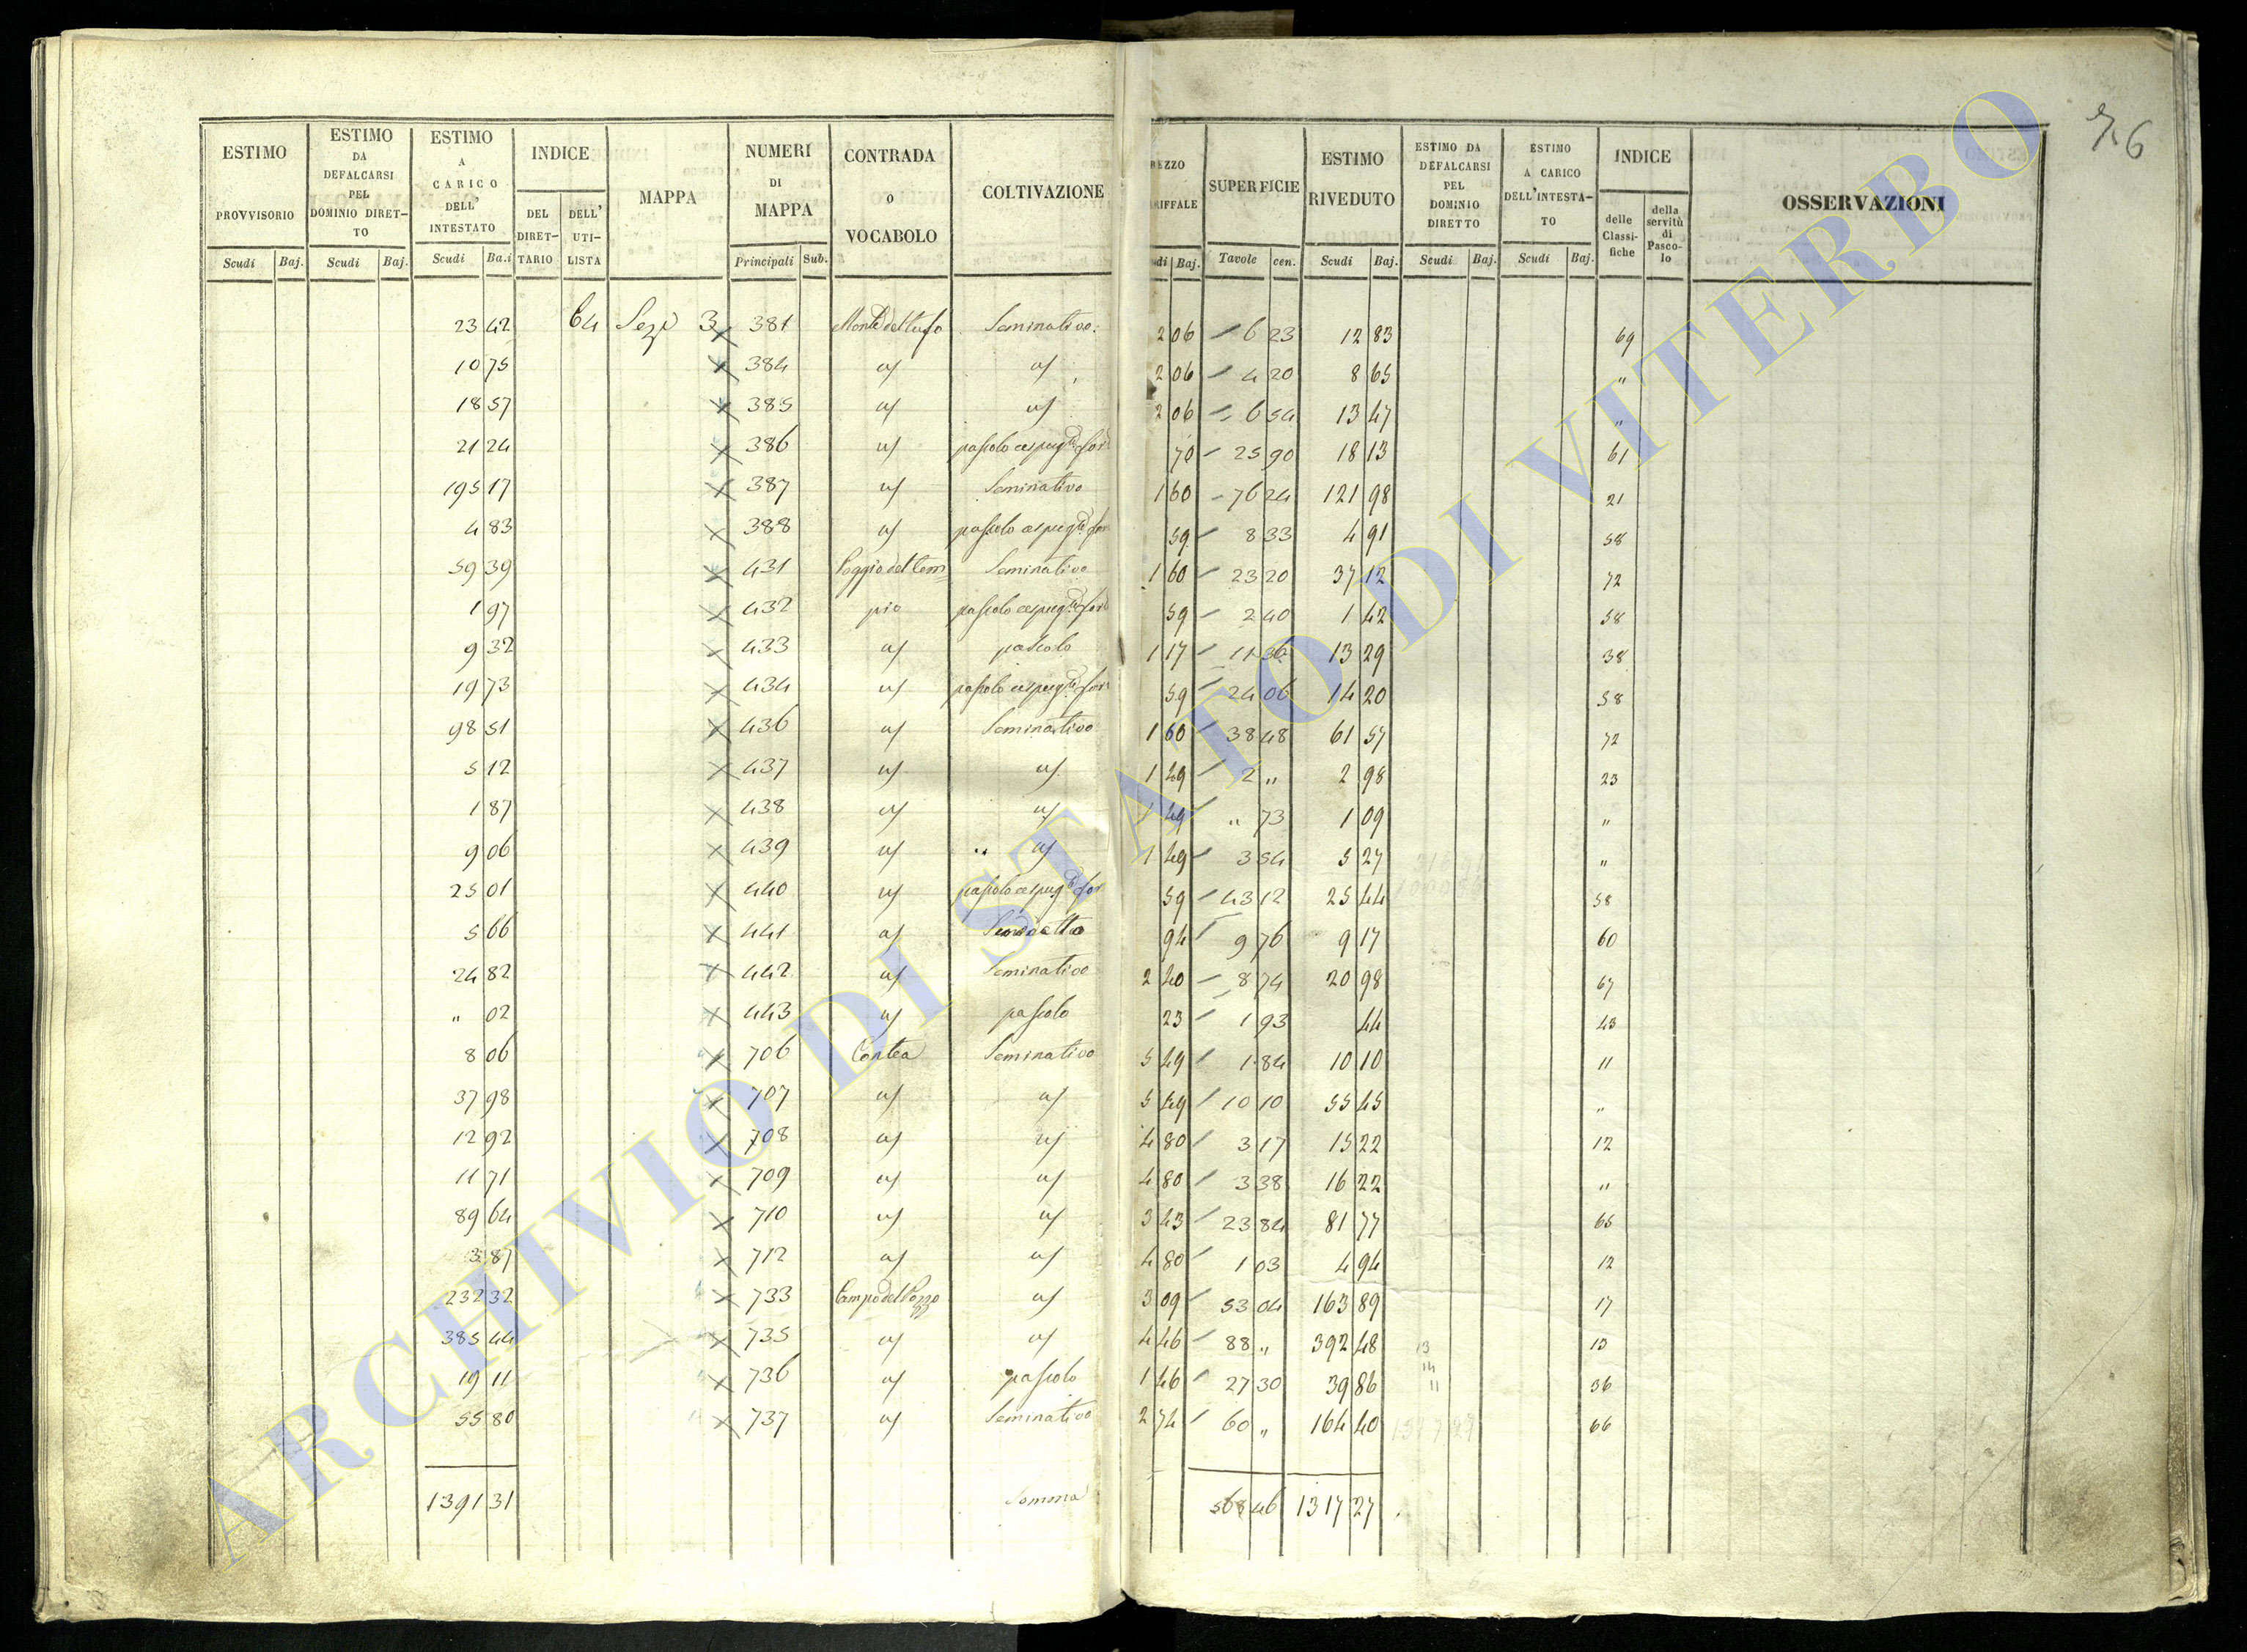 76
ESTIMO PROVVISORIO Scudi Baj.
ESTIMO DA DEFALCARSI PEL DOMINIO DIRET-TO Scudi Baj.
ESTIMO A CARICO DELL' INTESTATO Scudi Ba.i
INDICE DEL DIRET-TARIO DELL' UTI-LISTA
MAPPA
NUMERI DI MAPPA Principali Sub.
CONTRADA o VOCABOLO
COLTIVAZIONE
REZZO RIFFALE di Baj.
SUPERFICIE Tavole cen.
ESTIMO RIVEDUTO Scudi Baj.
ESTIMO DA DEFALCARSI PEL DOMINIO DIRETTO Scudi Baj.
ESTIMO A CARICO DELL'INTESTA-TO Scudi Baj.
INDICE delle Classi-fiche della servitù di Pasco-lo
OSSERVAZIONI
23 42 64 Sez. 3 381 Monte del tufo Seminativo 2 06 6 23 12 83 69
10 75 384 a/ a/ 2 06 4 20 8 65 "
18 57 385 a/ a/ 2 06 6 54 13 47 "
21 24 386 a/ pascolo cespugl.to for 70 25 90 18 13 61
195 17 387 a/ Seminativo 1 60 76 24 121 98 21
4 83 388 a/ pascolo cespugl.to for 59 8 33 4 91 58
59 39 431 Poggio del tem Seminativo 1 60 23 20 37 12 72
1 97 432 pio pascolo cespugl.to for 59 2 40 1 42 58
9 32 433 a/ pascolo 1 17 11 36 13 29 38
19 73 434 a/ pascolo cespugl.to for 59 24 06 14 20 58
98 51 436 a/ Seminativo 1 60 38 48 61 57 72
5 12 437 a/ a/ 1 49 2 " 2 98 23
1 87 438 a/ a/ 1 49 " 73 1 09 "
9 06 439 a/ a/ 1 49 3 54 5 27 "
25 01 440 a/ pascolo cespugl.to for 59 43 12 25 44 58
5 66 441 a/ 94 9 76 9 17 60
24 82 442 a/ Seminativo 2 40 8 74 20 98 67
" 02 443 a/ pascolo 23 1 93 44 43
8 06 706 Contea Seminativo 5 49 1 84 10 10 11
37 98 707 a/ a/ 5 49 10 10 55 45 "
12 92 708 a/ a/ 4 80 3 17 15 22 12
11 71 709 a/ a/ 4 80 3 38 16 22 "
89 64 710 a/ a/ 3 43 23 84 81 77 65
3 87 712 a/ a/ 4 80 1 03 4 94 12
232 32 733 Campo del Pozzo a/ 3 09 53 04 163 89 17
385 44 735 a/ a/ 4 46 88 " 392 48 13
19 11 736 a/ pascolo 1 46 27 30 39 86 36
55 80 737 a/ Seminativo 2 74 60 " 164 40 66
1391 31 Somma 568 46 1317 27
ARCHIVIO DI STATO DI VITERBO